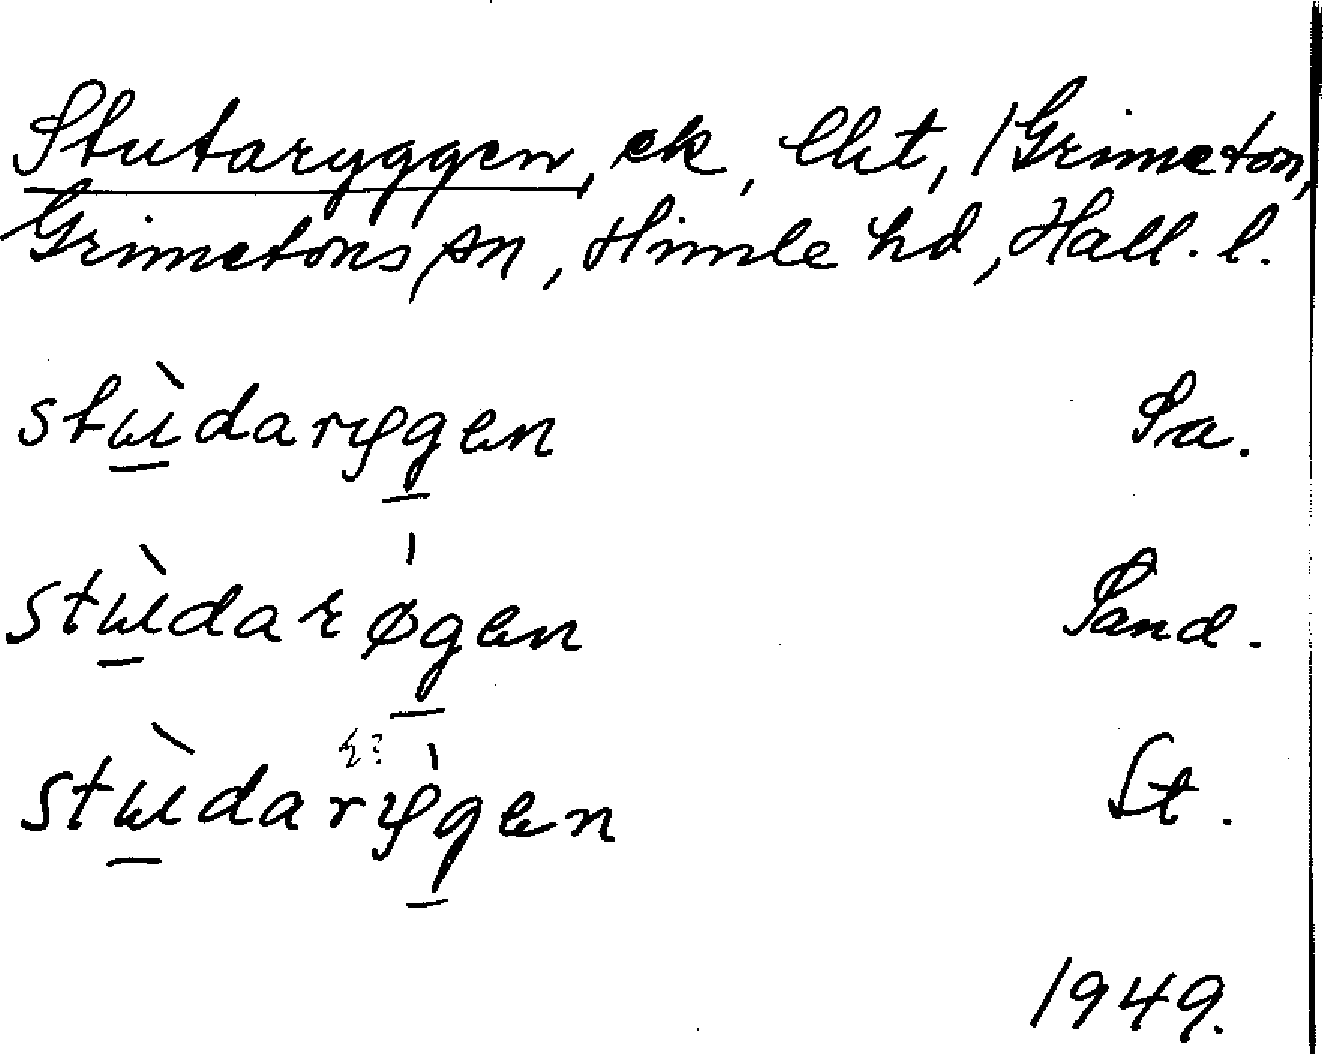 Stutaryggen, ek, lht, /Grimeton,
Grimetons sn, Himle hd, Hall. l.
stùdarygen Sa.
stùdarøgen Sand.
stùdarygen St.
1949.